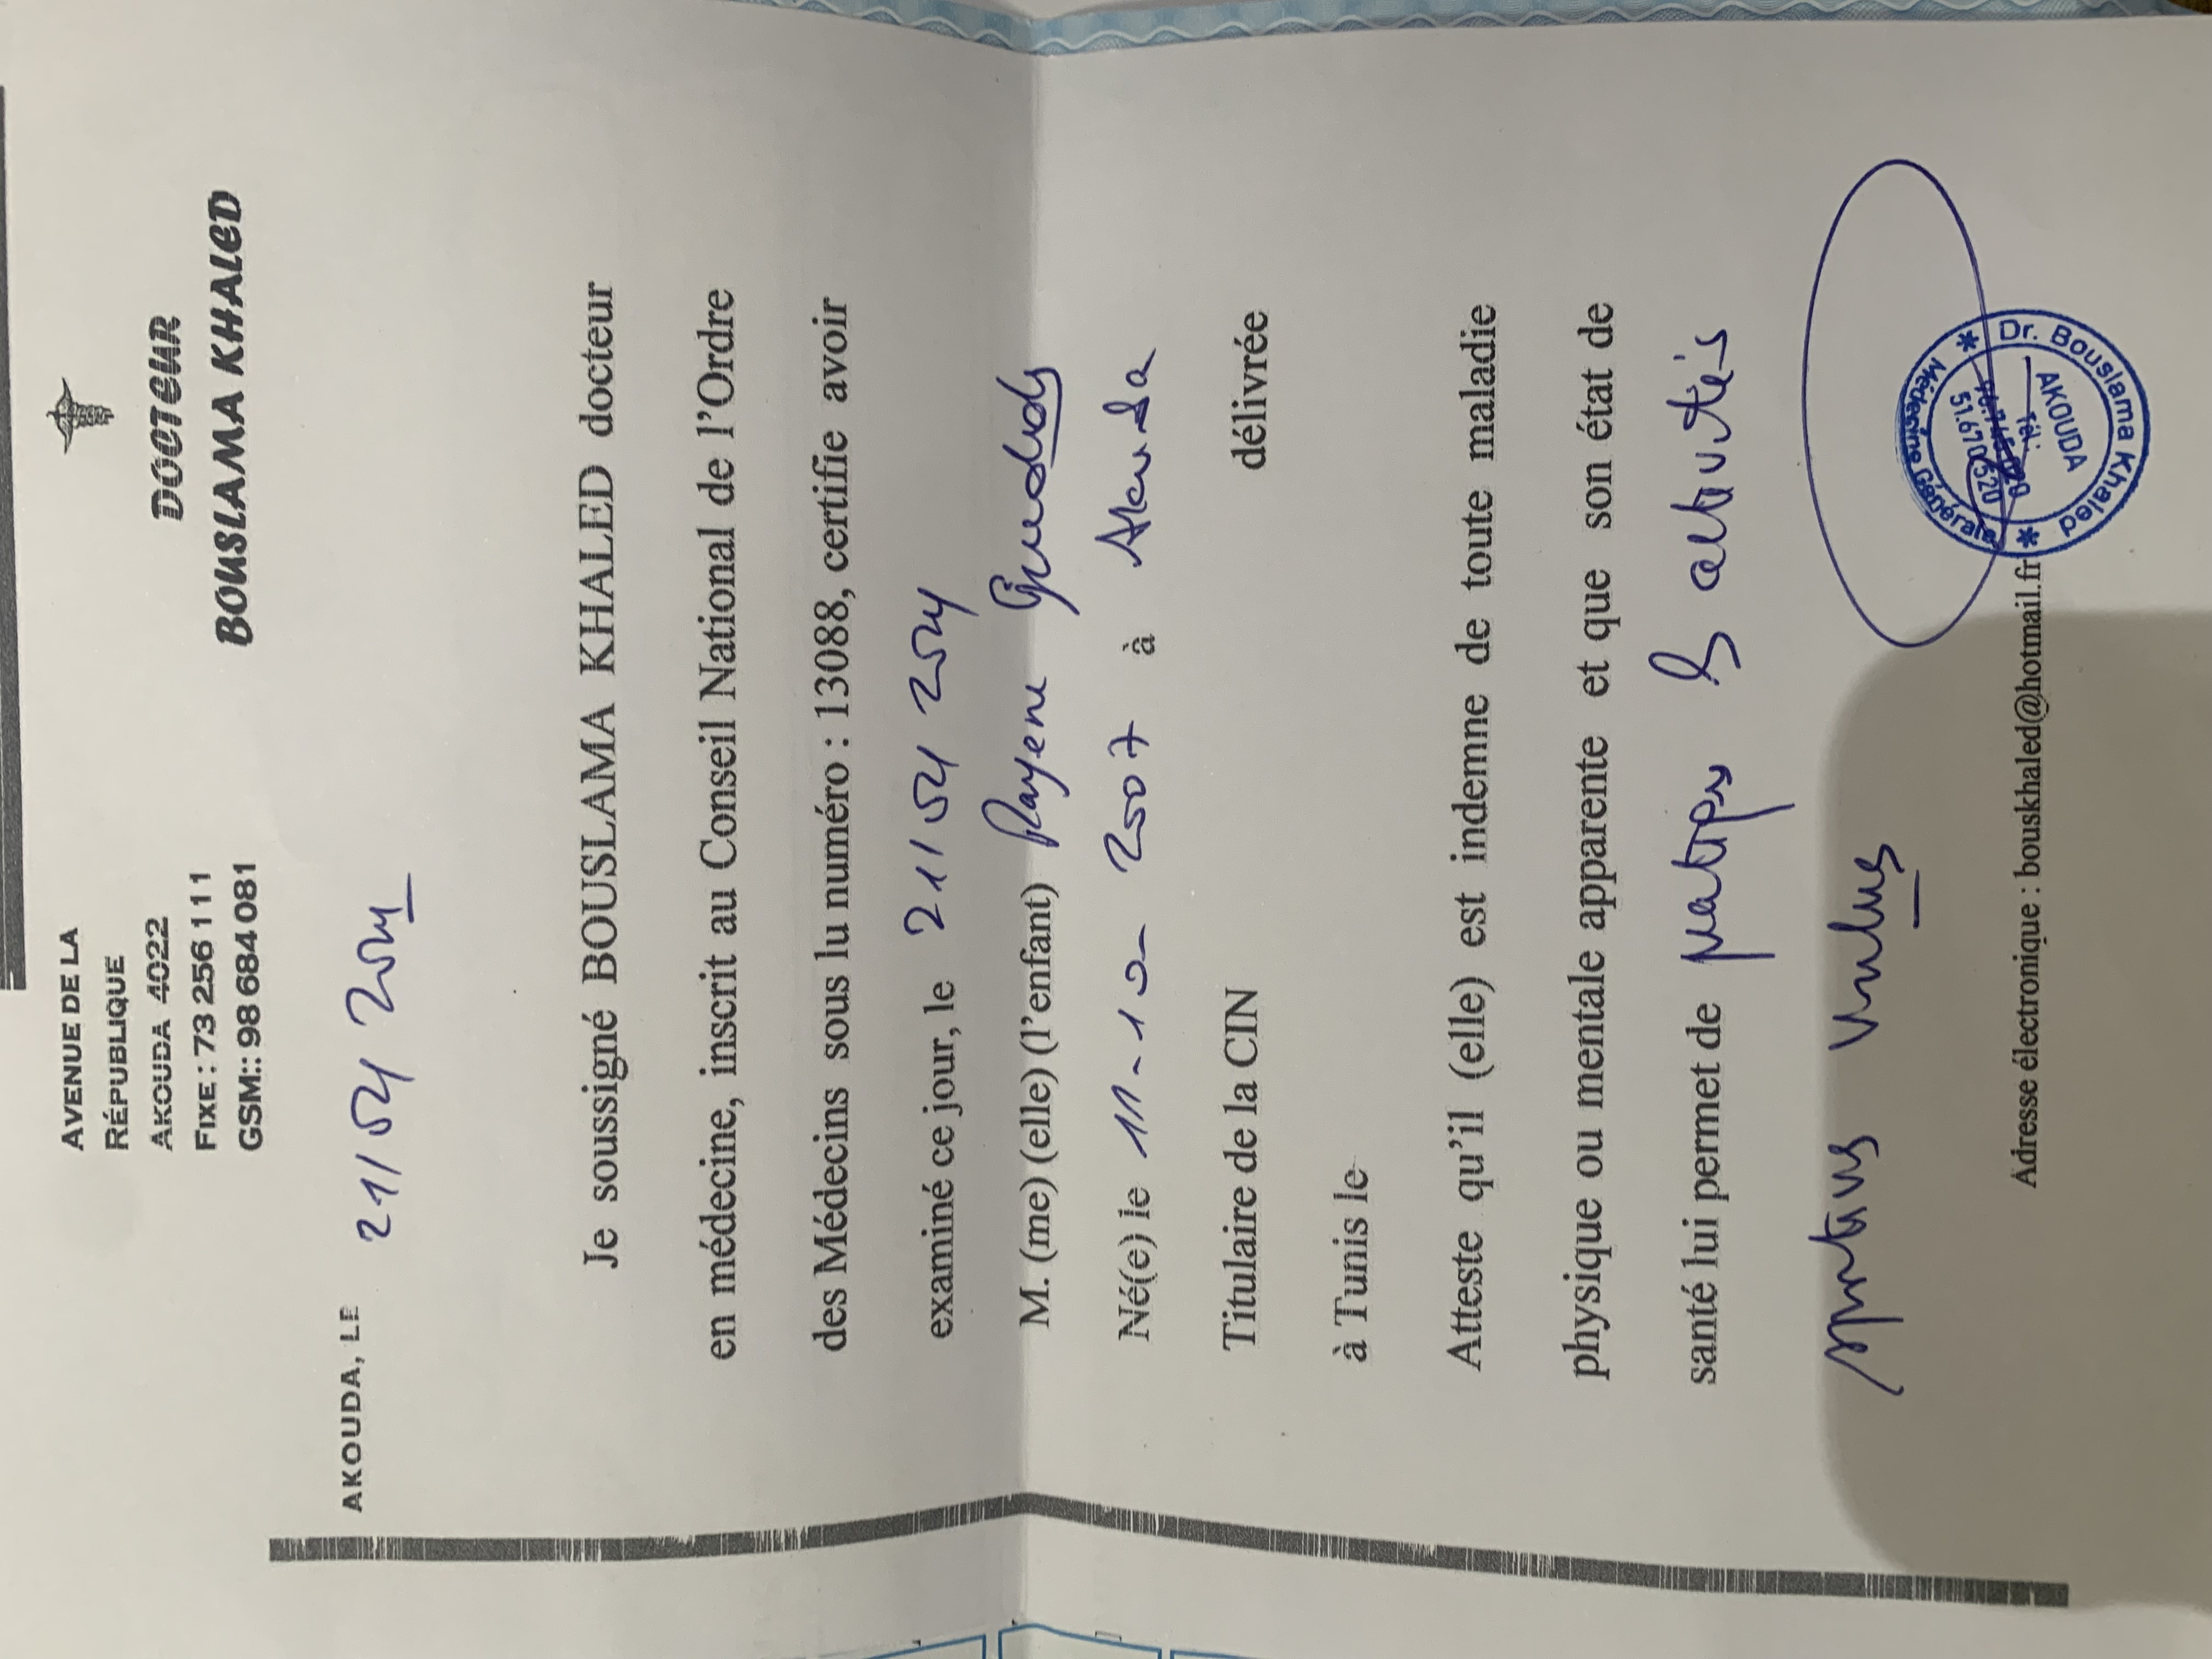 AVENUE DE LA
RÉPUBLIQUE
AKOUDA 4022
FIXE : 73 256 111
GSM:: 98 684 081
DOCTEUR
BOUSLAMA KHALED
AKOUDA, LE 21/04/2024
Je soussigné BOUSLAMA KHALED docteur
en médecine, inscrit au Conseil National de l'Ordre
des Médecins sous lu numéro : 13088, certifie avoir
examiné ce jour, le 21/04/2024
M. (me) (elle) (l'enfant) Rayene
Né(e) le 11-10-2007 à Akouda
Titulaire de la CIN délivrée
à Tunis le
Atteste qu'il (elle) est indemne de toute maladie
physique ou mentale apparente et que son état de
santé lui permet de pratiquer les activités
sportives
Dr. Bouslama Khaled
Médecine Générale
AKOUDA
Tél.:
51.670.520
Adresse électronique : bouskhaled@hotmail.fr